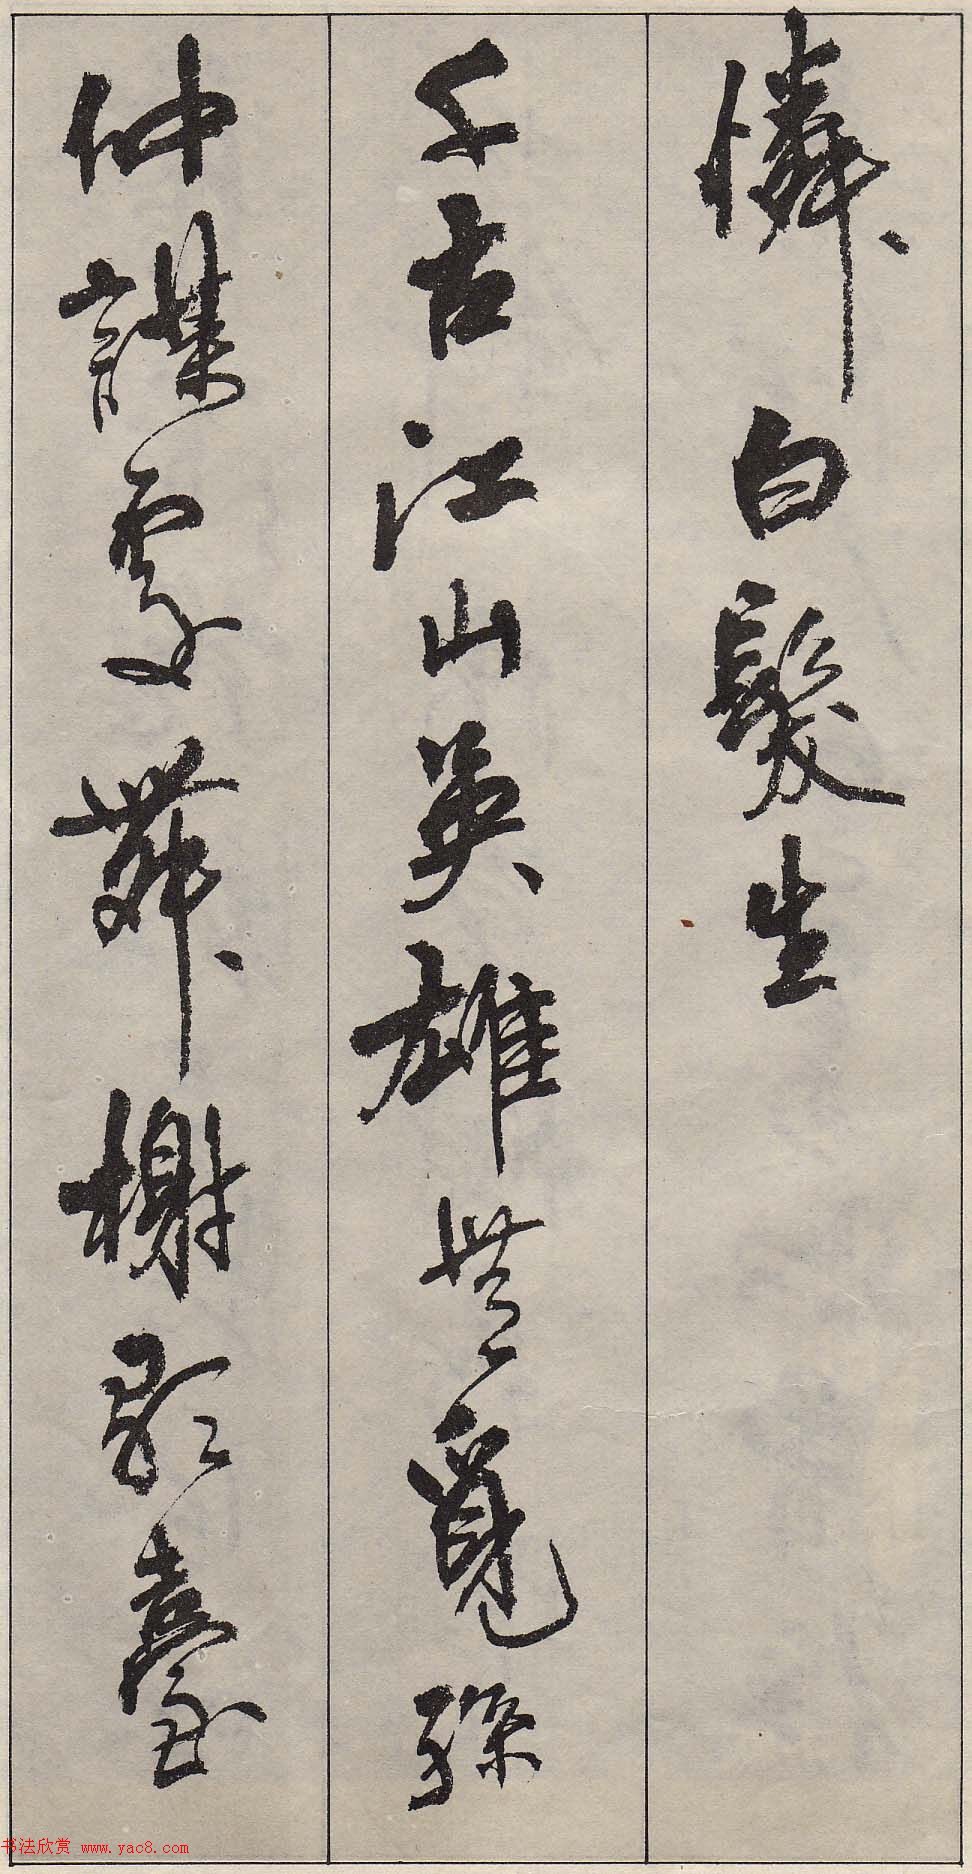 憐白髮生
千古江山英雄無覓孫
仲謀處舞榭歌臺
书法欣赏 www.yac8.com